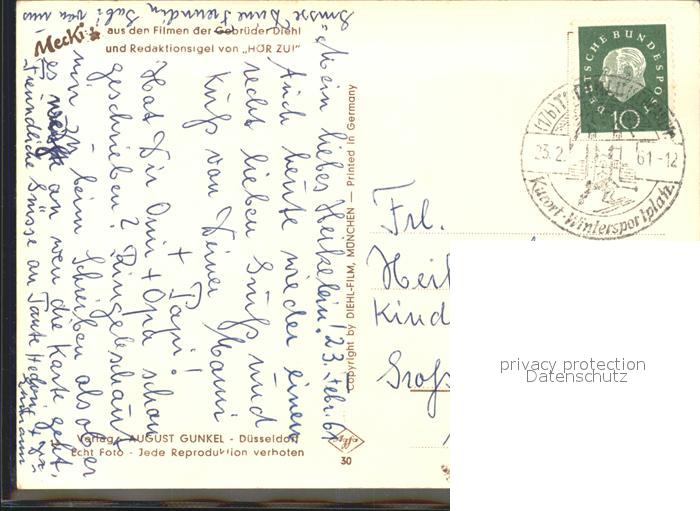 Mecki
aus den Filmen der Gebrüder Diehl
und Redaktionsigel von „HÖR ZU!"
23. Febr. 61
"Mein liebes Heikelein!
Auch heute wieder einen
recht lieben Gruß und
Kuß von Deiner Mami
+ Papi!
Hat Dir Omi + Opa schon
geschrieben? Ringelschaut
mir zu - beim Schreiben als ob er
es wüßte an wen die Karte geht,
Freundliche Grüsse an Tante Hedwig +
Grüsse Deine Freundin Gabi von uns
Copyright by DIEHL-FILM, MÜNCHEN — Printed in Germany
Verlag AUGUST GUNKEL - Düsseldorf
Echt Foto - Jede Reproduktion verboten
Agfa
30
DEUTSCHE BUNDESPOST
10
23.2.61-12
Kurort-Wintersportplatz
Frl.
Hei
Kind
Groß
privacy protection
Datenschutz